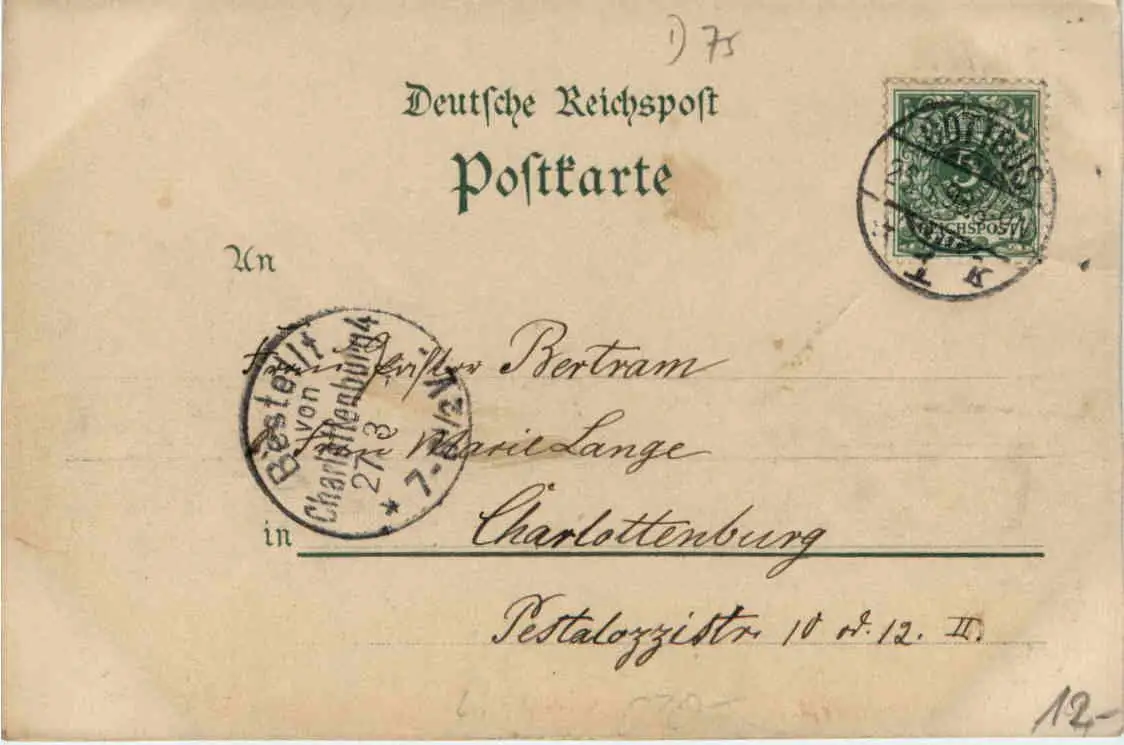 1) 75
Deutsche Reichspost
Postkarte
COTTBUS
5
REICHSPOST
An
Bestellt
von
Charlottenburg 4
27 3
* 7-8 1/2 V.
Bertram
Frau Marie Lange
in Charlottenburg
Pestalozzistr. 10 od. 12. II.
12,-